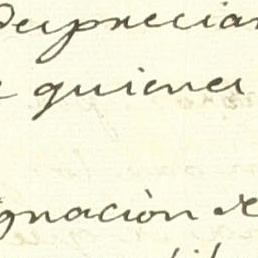 Despreciar
quienes
gnación de